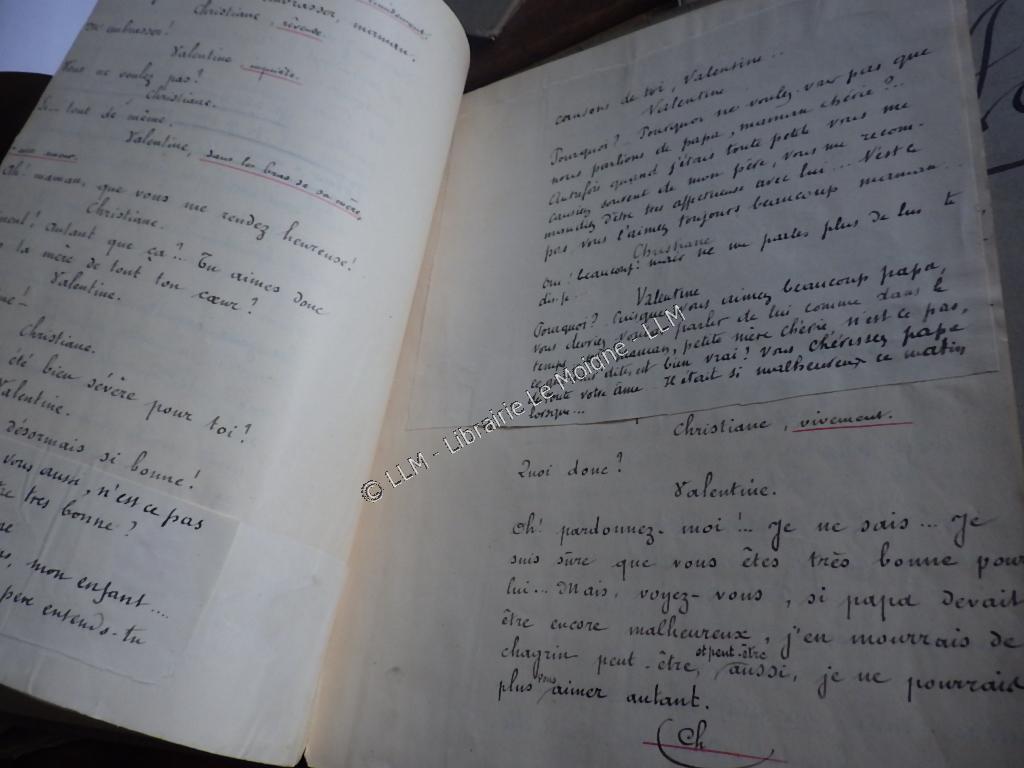 embrasser, maman.
Christiane, rêveuse.
embrasser!
Valentine, inquiète.
Vous ne voulez pas?
Christiane.
tout de même.
Valentine, dans les bras de sa mère,
Oh! maman, que vous me rendez heureuse!
Christiane.
Autant que ça?.. Tu aimes donc
ta mère de tout ton cœur?
Valentine.
Christiane.
été bien sévère pour toi?
Valentine.
désormais si bonne!
vous aussi, n'est ce pas
très bonne?
mon enfant...
père entends-tu
causons de toi, Valentine...
Valentine
Pourquoi? Pourquoi ne voulez-vous pas que
nous parlions de papa, maman chérie?..
Autrefois quand j'étais toute petite vous me
causiez souvent de mon père, vous me recom-
mandiez d'être très affectueuse avec lui... N'est ce
pas vous l'aimez toujours beaucoup maman...
Christiane
Oui! beaucoup! mais ne me parles plus de lui te
dis-je...
Valentine
Pourquoi? Puisque vous aimez beaucoup papa,
vous devriez parler de lui comme dans le
temps maman, petite mère chérie, n'est ce pas,
est bien vrai? vous chérissez papa
votre âme. Il était si malheureux ce matin
lorsque...
Christiane, vivement.
Quoi donc?
Valentine.
Oh! pardonnez-moi!... Je ne sais... Je
suis sûre que vous êtes très bonne pour
lui... Mais, voyez-vous, si papa devait
être encore malheureux, j'en mourrais de
chagrin peut-être, et peut-être aussi, je ne pourrais
plus vous aimer autant.
Ch
© LLM - Librairie Le Moigne - LLM